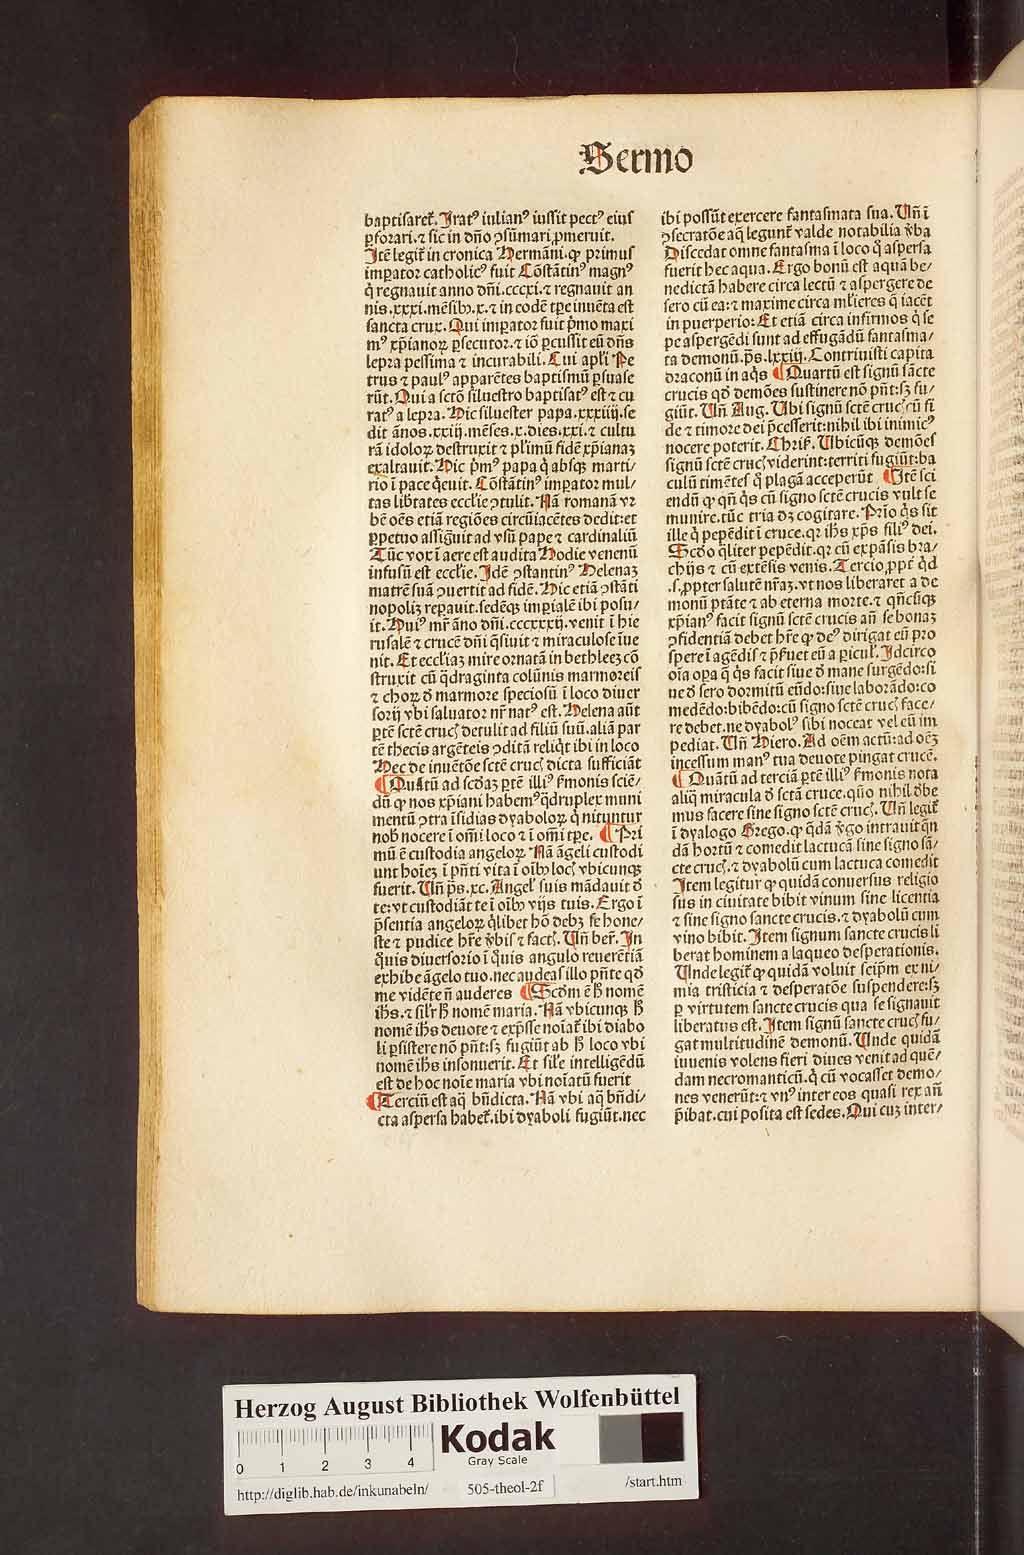 Sermo
baptisaret̃. Irat⁹ iulian⁹ iussit pect⁹ eius
ꝑforari. ⁊ sic in dño ꝯsũmari ꝓmeruit.
Itẽ legit̃ in cronica Hermãni. ꝙ primus
imꝑator catholic⁹ fuit Cõstãtin⁹ magn⁹
q̇ regnauit anno dñi .cccxi. ⁊ regnauit an
nis .xxxi. mẽsibꝫ .x. ⁊ in codẽ tꝑe inuẽta est
sancta crux. Qui imꝑator fuit p̃mo maxi
m⁹ xp̃ianoꝝ ꝑsecutor. ⁊ iõ ꝑcussit eũ dñs
lepra pessima ⁊ incurabili. Cui apl̃i Pe
trus ⁊ paul⁹ apparẽtes baptismũ ꝑsuase
rũt. Qui a sctõ siluestro baptisat⁹ est ⁊ cu
rat⁹ a lepra. Hic siluester papa .xxxiiij. se
dit ãnos .xxiij. mẽses .x. dies .xxi. ⁊ cultu
rã idoloꝝ destruxit ⁊ pl'imũ fidẽ xp̃ianaꝫ
exaltauit. Hic p̃m⁹ papa q̇ absqꝫ marti/
rio ĩ pace q̇euit. Cõstãtin⁹ imꝑator mul/
tas lib̃tates eccl'ie ꝯtulit. Nã romanã vr
bẽ oẽs etiã regiões circũiacẽtes dedit: et
ꝑpetuo assig̃uit ad vsũ pape ⁊ cardinaliũ
Tũc vox ĩ aere est audita Hodie venenũ
infusũ est eccl'ie. Idẽ ꝯstantin⁹ Helenaꝫ
matrẽ suã ꝯuertit ad fidẽ. Hic etiã ꝯstãti
nopoliꝫ reꝑauit. sedẽqꝫ imꝑialẽ ibi posu/
it. Hui⁹ mr̃ ãno dñi .cccxxxij. venit ĩ hie
rusalẽ ⁊ crucẽ dñi q̃siuit ⁊ miraculose ĩue
nit. Et eccl'iaꝫ mire ornatã in bethleeꝫ cõ
struxit cũ q̃draginta colũnis marmoreis
⁊ choꝝ đ marmore speciosũ ĩ loco diuer
sorij vbi saluator nr̃ nat⁹ est. Helena aũt
ꝑtẽ sctẽ cruc̨ detulit ad filiũ suũ. aliã par
tẽ thecis argẽteis ꝯditã reliq̇t ibi in loco
Hec de inuẽtõe sctẽ cruc̨ dicta sufficiãt
¶ Quãtũ ad scđaꝫ ꝑtẽ illi⁹ s̃monis sciẽ/
dũ ꝙ nos xp̃iani habem⁹ q̃druplex muni
mentũ ꝯtra ĩsidias dyaboloꝝ q̇ nituntur
nob̃ nocere ĩ om̃i loco ⁊ ĩ om̃i tꝑe. ¶ Pri
mũ ẽ custodia angeloꝝ Nã ãgeli custodi
unt hoĩeꝫ ĩ p̃nti vita ĩ oĩbꝫ loc̨ vbicunqꝫ
fuerit. Vñ p̃s. xc. Angel' suis mãdauit đ
te: vt custodiãt te ĩ oĩbꝫ vijs tuis. Ergo ĩ
p̃sentia angeloꝝ q̇libet hõ debꝫ se hone/
ste ⁊ pudice hr̃e v̓bis ⁊ fact̨. Vñ ber̃. In
q̇uis diuersorio ĩ q̇uis angulo reuerẽtiã
exhibe ãgelo tuo. nec audeas illo p̃ñte qđ
me vidẽte ñ auderes ¶ Scđm ẽ h̃ nomẽ
ih̃s. ⁊ sil'r h̃ nomẽ maria. Nã vbicunqꝫ h̃
nomẽ ih̃s deuote ⁊ exp̃sse noĩat̃ ibi diabo
li ꝑsistere nõ p̃ñt: sꝫ fugiũt ab h̃ loco vbi
nomẽ ih̃s insonuerit. Et sil'e intelligẽdũ
est de hoc noĩe maria vbi noĩatũ fuerit
¶ Terciũ est aq̃ bñdicta. Nã vbi aq̃ bñdi/
cta aspersa habet̃. ibi dyaboli fugiũt. nec
ibi possũt exercere fantasmata sua. Vñ ĩ
ꝯsecratõe aq̃ legunt̃ valde notabilia v̓ba
Discedat omne fantasma ĩ loco q̊ aspersa
fuerit hec aqua. Ergo bonũ est aquã be/
nedictã habere circa lectũ ⁊ aspergere de
sero cũ ea: ⁊ maxime circa ml'ieres q̃ iacẽt
in puerperio: Et etiã circa infirmos q̇ se
pe aspergẽdi sunt ad effugãdũ fantasma/
ta demonũ. p̃s. lxxiij. Contriuisti capita
draconũ in aq̇s ¶ Quartũ est signũ sãcte
crucis qđ demões sustinere nõ p̃ñt: sꝫ fu/
giũt. Vñ Aug. Vbi signũ sctẽ cruc̨ cũ fi
de ⁊ timore dei p̃cesserit: nihil ibi inimic⁹
nocere poterit. Chris̃. Vbicũqꝫ demões
signũ sctẽ cruc̨ viderint: territi fugiũt: ba
culũ timẽtes q̊ plagã acceperũt ¶ Itẽ sci
endũ ꝙ qñ q̇s cũ signo sctẽ crucis vult se
munire. tũc tria dꝫ cogitare. Prĩo q̇s sit
ille q̇ pepẽdit ĩ cruce. qꝛ ih̃s xp̃s fili⁹ dei.
Scđo q̃liter pepẽdit. qꝛ cũ expãsis bra/
chijs ⁊ cũ extẽsis venis. Tercio ꝓpẽ q̊d
.s. ꝓpter salutẽ nr̃aꝫ. vt nos liberaret a de
monũ ptãte ⁊ ab eterna morte. ⁊ qñcũqꝫ
xp̃ian⁹ facit signũ sctẽ crucis añ se bonaꝫ
ꝯfidentiã debet hr̃e ꝙ de⁹ dirigat eũ pro
spere ĩ agẽdis ⁊ p̃seruet eũ a ꝑicul'. Idcirco
oĩa oꝑa q̃ q̇s facit siue đ mane surgẽdo: si
ue đ sero dormitũ eũdo: siue laborãdo: co
medẽdo: bibẽdo: cũ signo sctẽ cruc̨ face/
re debet. ne dyabol⁹ sibi noceat vel eũ im
pediat. Vñ Hiero. Ad oẽm actũ: ad oẽꝫ
incessum man⁹ tua deuote pingat crucẽ.
¶ Quãtũ ad terciã ꝑtẽ illi⁹ s̃monis nota
aliq̃ miracula đ sctã cruce. quo nihil đbe
mus facere sine signo sctẽ cruc̨. Vñ legit̃
ĩ dyalogo Grego. ꝙ q̃dã v̓go intrauit q̃n
dã hortũ ⁊ comedit lactucã sine signo sã/
cte cruc̨. ⁊ dyabolũ cum lactuca comedit
Item legitur ꝙ quidã conuersus religio
sus in ciuitate bibit vinum sine licentia
⁊ sine signo sancte crucis. ⁊ dyabolũ cum
vino bibit. Item signum sancte crucis li
berat hominem a laqueo desperationis.
Vnde legit̃ ꝙ quidã voluit seip̃m ex ni/
mia tristicia ⁊ desperatõe suspendere: sꝫ
ꝑ virtutem sancte crucis qua se signauit
liberatus est. Item signũ sancte cruc̨ fu/
gat multitudinẽ demonũ. Vnde quidã
iuuenis volens fieri diues venit ad quẽ/
dam necromanticũ. q̇ cũ vocasset demo/
nes venerũt: ⁊ vn⁹ inter eos quasi rex añ
p̃ibat. cui posita est sedes. Qui cuꝫ inter/
Herzog August Bibliothek Wolfenbüttel
0 1 2 3 4
Kodak
Gray Scale
http://diglib.hab.de/inkunabeln/ 505-theol-2f /start.htm